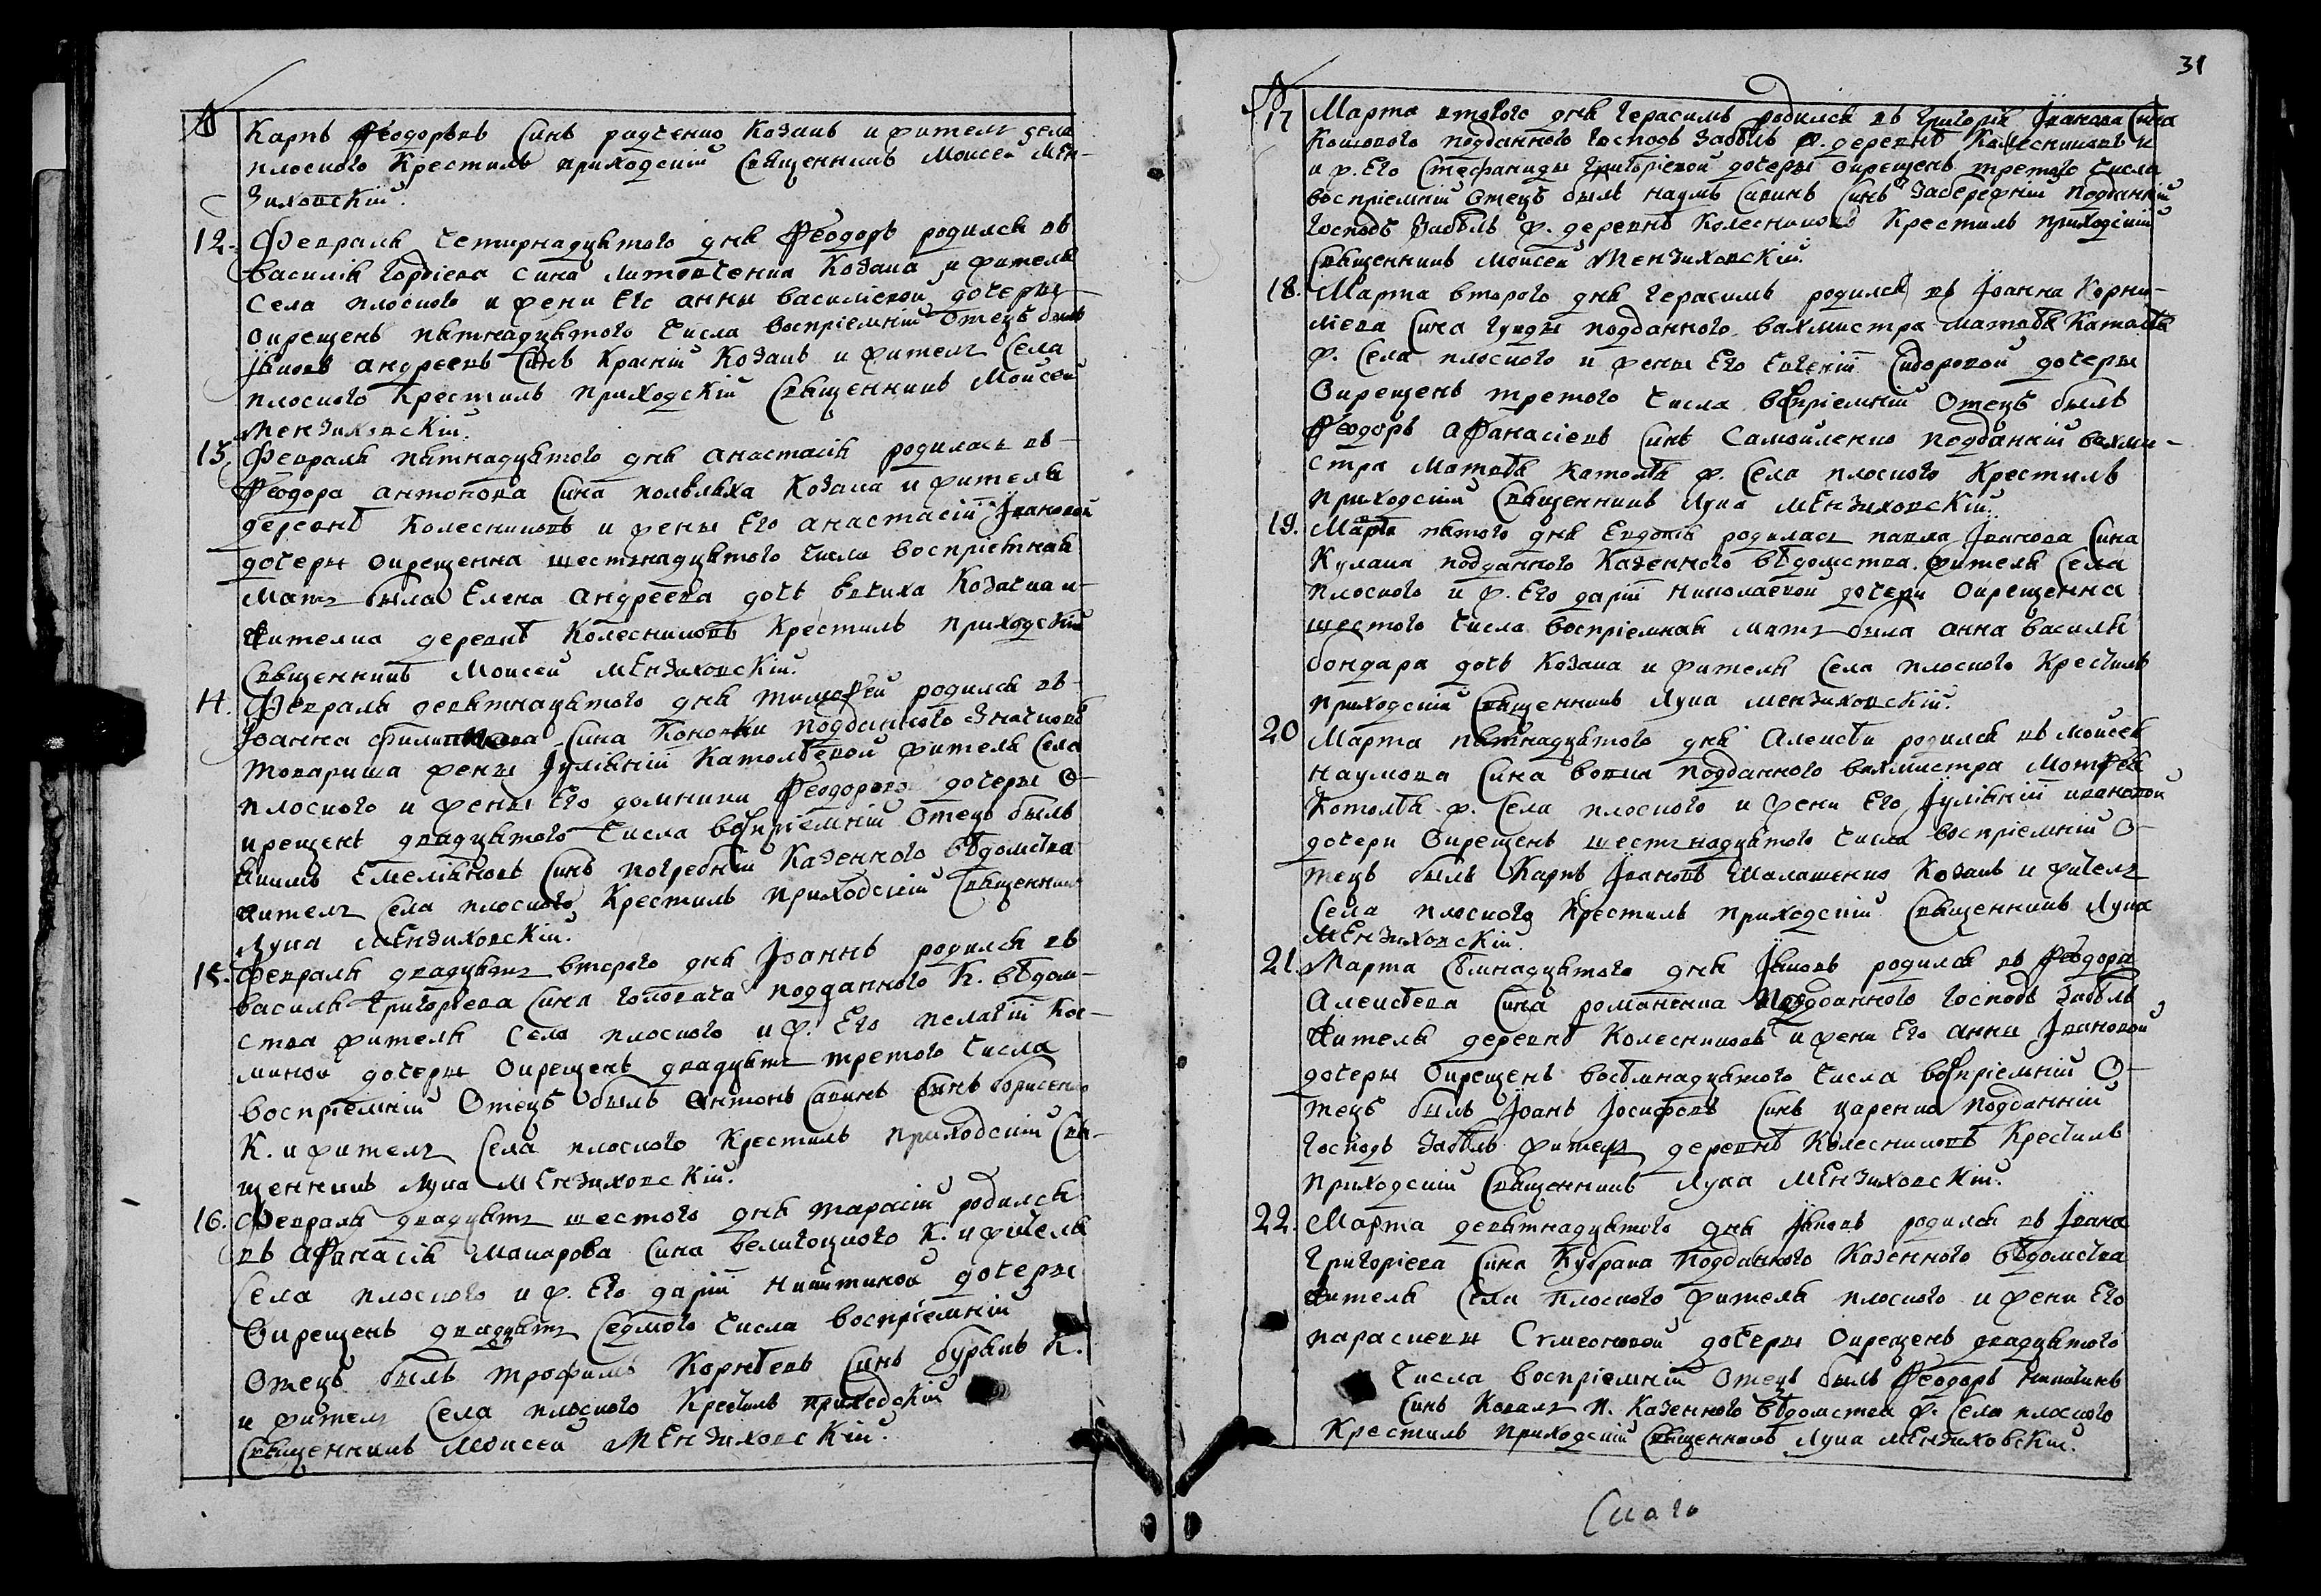 31
№
Карпъ Феодоровъ Синъ радченко Козакъ и житель села
плоского Крестилъ приходскій Священникъ Моисей Мен-
зиховскій.
12. Февраля четирнадцятого дня Феодоръ родился въ
василія гордіева сина литовченка Козака и жителя
Села плоского и жени Его анны василіевой дочеры
окрещенъ пятнадцятого числа воспріемній Отецъ былъ
Яковъ андреевъ Синъ Красній Козакъ и житель Села
плоского Крестилъ приходскій Священникъ Моисей
Мензиховскій.
13. Февраля пятнадцятого дня анастасія родилась въ
Феодора антонова Сина Козака и жителя
деревнѣ Колесниковъ и жены Его анастасіи Ївановой
дочеры окрещенна шестнадцятого числа воспріемная
Мать была Елена андреева дочь Козачка и
жителка деревнѣ Колесниковъ Крестилъ приходскій
Священникъ Моисей Мензиховскій.
14. Февраля девятнацятого дня тимофей родился въ
Їоанна филиппова Сина Коновки подданного Значковъ
Товариша жены Їуліяніи Католѣевой жителя Села
плоского и жены Его домники Феодоровой дочеры О-
крещенъ двадцятого числа воспріемній Отецъ былъ
Якимъ Емеліяновъ Синъ погребній Казенного вѣдомства
житель Села плоского Крестилъ приходскій Священникъ
Лука Мензиховскій.
15. Февраля двадцять второго дня Їоаннъ родился въ
василя григоріева Сина головача подданного К. вѣдом-
ства жителя Села плоского и ж. Его пелагіи Кос-
миной дочеры Окрещенъ двадцять третого числа
воспріемній Отецъ былъ антонъ Савинъ Синъ борисенко
К. и житель Села плоского Крестилъ приходскій Свя-
щенникъ Лука Мензиховскій.
16. Февраля двадцять шестого дня тарасій родился
въ афанасія Макарова Сина великоцкого К. и жителя
Села плоского и ж. Его даріи Никитиной дочеры
Окрещенъ двадцять Седмого числа воспріемній
Отецъ былъ трофимъ Корнѣевъ Синъ бурякъ К.
и житель Села плоского Крестилъ приходскій
Священникъ Моисей Мензиховскій.
№
17 Марта второго дня герасимъ родился въ григорія Їванова Сина
Кошового подданного господъ Забѣлъ ж. деревнѣ Колесниковъ и
и ж. Его Стефаниды григоріевой дочеры окрещенъ третого числа
воспріемній Отецъ былъ наумъ Савинъ Синъ Забережній подданній
господъ Забѣлъ ж. деревнѣ Колесниковъ Крестилъ приходскій
Священникъ Моисей Мензиховскій.
18. Марта второго дня герасимъ родился въ Їоанна Корни-
ліева Сина гунды подданного вахмистра Матвѣя Католѣя
ж. Села плоского и жены Его Евгеніи Сидоровой дочеры
Окрещенъ третого числа воспріемній Отецъ былъ
Феодоръ афанасіевъ Синъ Самойленко подданній вахми-
стра Матвѣя католѣя ж. Села плоского Крестилъ
приходскій Священникъ Лука Мензиховскій.
19. Марта пятого дня Евдокія родилась павла Їванова Сина
Кулака подданного Казенного вѣдомства жителя Села
плоского и ж. Его даріи николаевой дочери Окрещенна
шестого числа воспріемная мать была анна василя
бондара дочь Козака и жителя Села плоского Крестилъ
приходскій Священникъ Лука Мензиховскій.
20 Марта пятнадцятого дня Алексѣй родился въ моисея
наумова Сина вовка подданного вахмистра Мотфея
Котолѣя ж. Села плоского и жени Его Їуліяніи ивановой
дочери Окрещенъ шестьнадцятого числа воспріемній О-
тецъ былъ Карпъ Ївановъ Малашенко Козакъ и житель
Села плоского Крестилъ приходскій Священникъ Лука
Мензиховскій.
21. Марта Семнадцятого дня Яковъ родился въ Феодора
Алексѣева Сина романенка подданного господъ Забѣлъ
жителя деревнѣ Колесниковъ и жени Его анны Ївановой
дочеры Окрещенъ восѣмнадцятого числа воспріемній О-
тецъ былъ Їоанъ Їосифовъ Синъ царенко подданній
господъ Забѣлъ житель деревнѣ Колесниковъ Крестилъ
приходскій Священникъ Лука Мензиховскій.
22. Марта девятнадцятого дня Яковъ родился въ Їоана
григоріева Сина Кубрака подданного Казенного вѣдомства
жителя Села плоского жителя плоского и жени Его
параскевы Симеоновой дочеры Окрещенъ двадцятого
числа воспріемній Отецъ былъ Феодоръ никитинъ
Синъ Коваль П. Казенного вѣдомства ж. Села плоского
Крестилъ приходскій Священникъ Лука Мензиховскій.